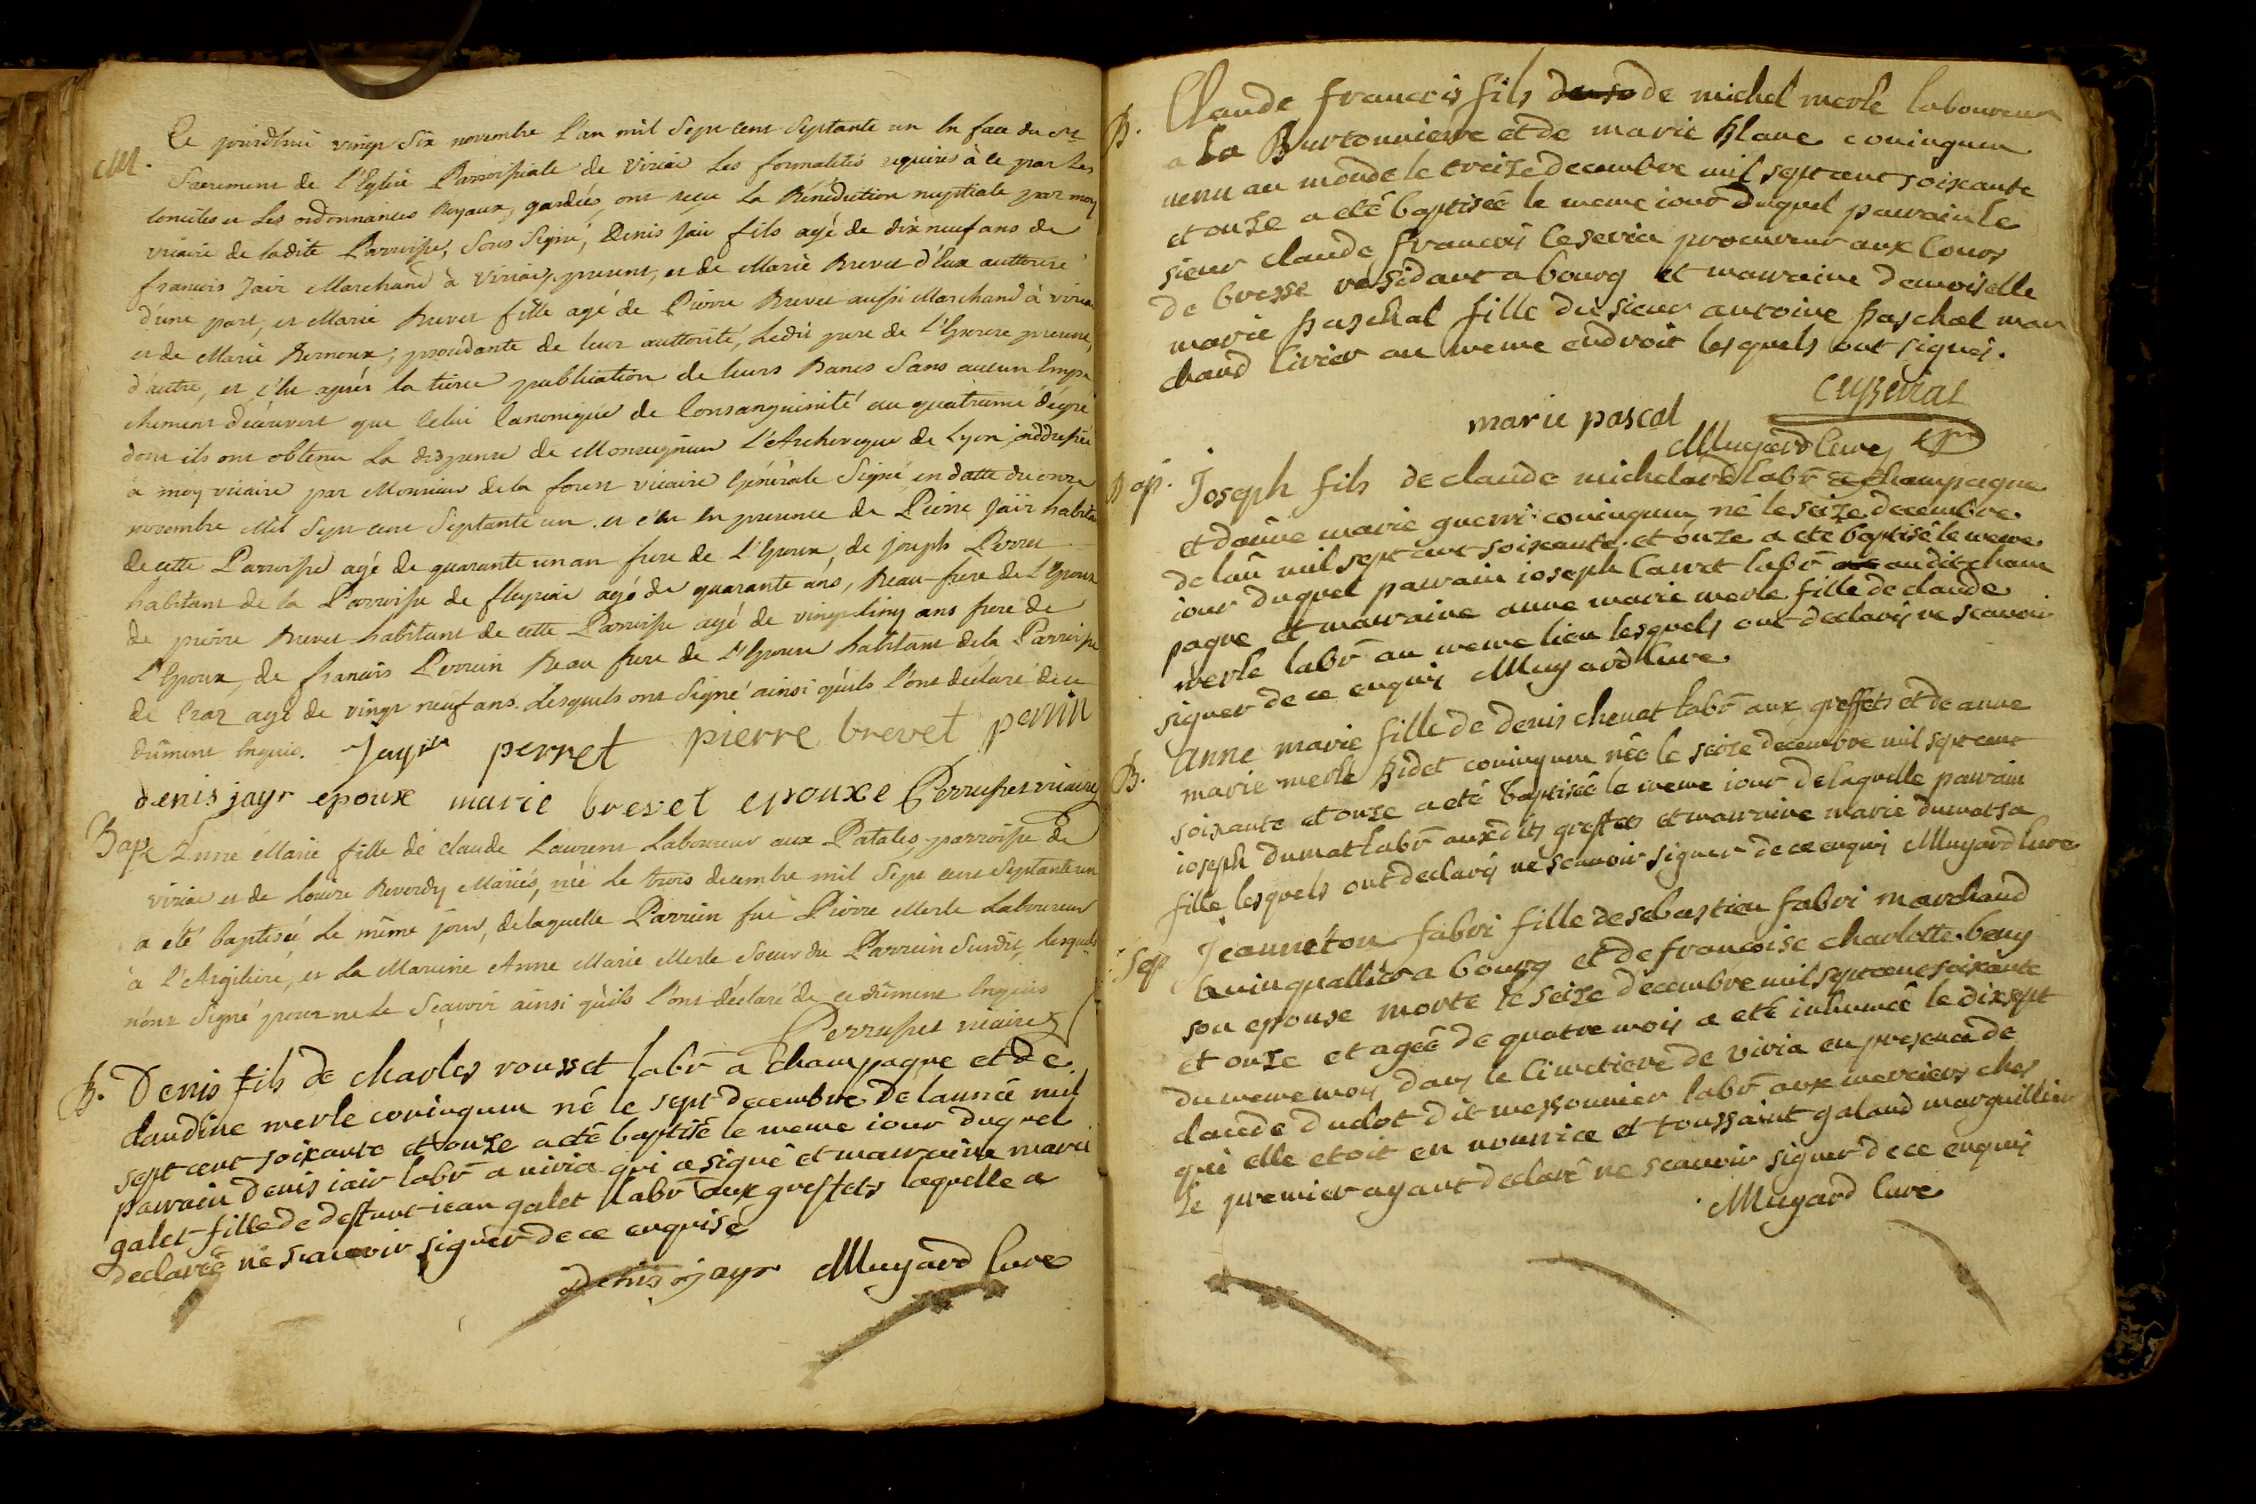 Ce jourdhui vingt six novembre l'an mil sept cent septante un en face du St
M.
Sacrement de l'Eglise Parroissiale de Viriac les formalités requises à ce par les
conciles et les ordonnances Royaux, gardées, ont reçu la Bénédiction nuptiale par moy
vicaire de ladite Parroisse, Sous Signé, Denis Jair fils agé de dix neuf ans de
francois Jair Marchand à viriac, present, et de Marie Brevet d'Eux authorisé
d'une part, et Marie Brevet fille agé de Pierre Brevet aussi Marchand à viriac
et de Marie Bernoux; procedante de leur authorité, ledit pere de l'Epouse present,
d'autre, et c'he après la tierce publication de leurs Bancs Sans aucun Empe
chement découvert que celui Canonique de Consanguinité au quatrieme dégré
dont ils ont obtenu la dispense de Monseigneur L'Archeveque de Lyon addressée
à moy vicaire par Monsieur de la forest vicaire Générale Signé en datte du onze
novembre Mil Sept cent Septante un. et c'he en presence de Pierre Jair habita
de cette Parroisse agé de quarante un an frere de l'Epoux, de joseph Perret
habitant de la Parroisse de fleyriac agé de quarante ans, Beau-frere de l'Epoux
de pierre Brevet habitant de cette Parroisse agé de vingt cinq ans frere de
l'Epouse, de francois Perrin Beau frere de l'Epouse habitant de la Parroisse
de Craz agé de vingt neuf ans. Lesquels ont Signé ainsi qu'ils l'ont déclaré de ce
dûment Enquis. Jayr perret pierre brevet perrin
denis jayr epoux marie brevet epouxe Perruset vicaire
Bap. Anne Marie fille de claude Laurent Laboureur aux Patales parroisse de
viriac et de Louise Reverdy Mariés, née le trois decembre mil Sept cent Septante un
a été baptisée le même jour, de laquelle Parrein fut Pierre Merle Laboureur
à l'Argiliere, et la Mareine Anne Marie Merle Soeur du Parrein Susdit, lesquels
n'ont Signé pour ne le Sçavoir ainsi qu'ils l'ont déclaré de ce dûment Enquis
Perruset vicaire
B. Denis fils de charles rousset labr a champagne et de
claudine merle coniugum né le sept decembre de lanneé mil
sept cent soixante et onze a eté baptisé le meme iour duquel
parrain denis iair labr a viria qui a signé et marraine marie
galet fille de deffunt iean galet labr aux greffets laquelle a
declareé ne scavoir signer de ce enquise
denis jayr Muyard Cure
B. Claude francois fils de michel merle laboureur
a la Burtonniere et de marie Blanc coniugum
venu au monde le treize decembre mil sept cent soixante
et onze a eté baptiseé le meme iour duquel parrain le
sieur claude francois ceseria procureur aux Cours
de bresse residant a bourg et marraine demoiselle
marie paschal fille du sieur antoine paschal mar
chand Cirier au meme endroit lesquels ont signés.
marie pascal
Muyard Cure
Bap. Joseph fils de claude michelard labr a champagne
et daûne marie guerri coniugum né le seize decembre
de lan mil sept cent soixante et onze a eté baptisé le meme
iour duquel parrain ioseph Carret labr audit cham
pagne et marraine anne marie merle fille de claude
merle labr au meme lieu lesquels ont declarés ne scavoir
signer de ce enquis Muyard Cure
B. Anne marie fille de denis chenet labr aux greffets et de anne
marie merle Bidet coniugum neé le seize decembre mil sept cent
soixante et onze a eté baptiseé le meme iour de laquelle parrain
ioseph dumat labr auxdits greffets et marraine marie dumat sa
fille lesquels ont declarés ne scavoir signer de ce enquis Muyard Cure
Sep. Jeanneton fabri fille de sebastien fabri marchand
quinquallier a bourg et de francoise charlotte beny
son epouse morte le seize decembre mil sept cent soixante
et onze et ageé de quatre mois a eté inhumeé le dix sept
du meme mois dans le Cimetiere de viria en presence de
claude dudot dit messonnier labr aux merciers ches
qui elle etoit en nourrice et toussaint galand marguillier
le premier ayant declaré ne scavoir signer de ce enquis
Muyard Cure